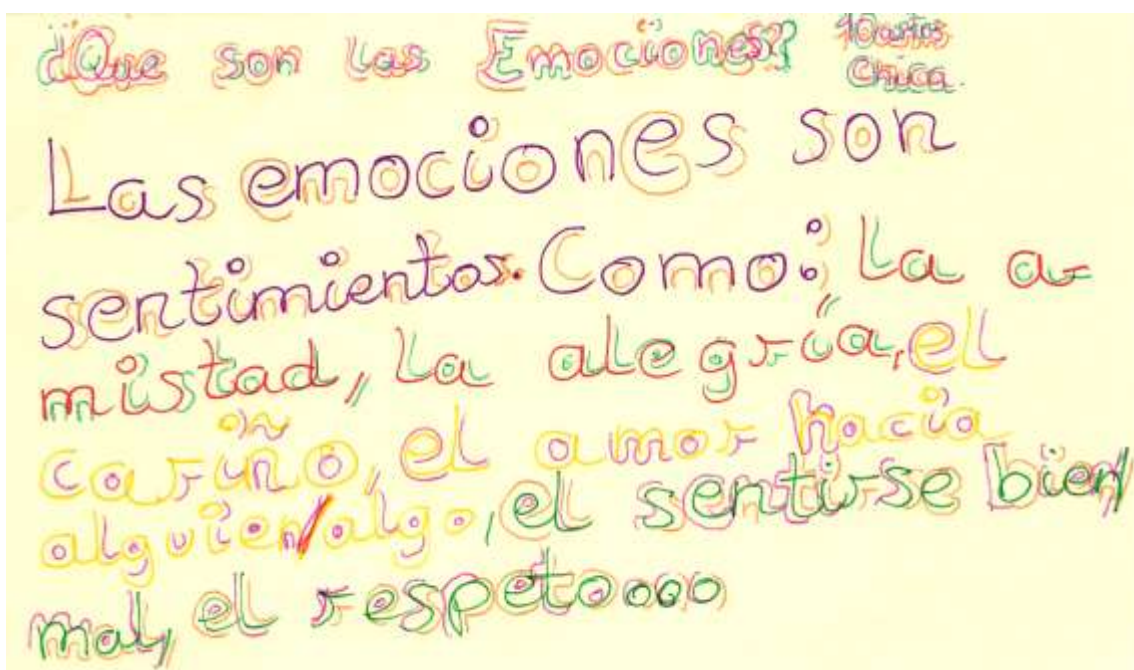 ¿Que son las Emociones? 10 años
Chica.
Las emociones son
sentimientos. Como: la a-
mistad, la alegría, el
cariño, el amor hacia
alguien/algo, el sentirse bien/
mal, el respeto...